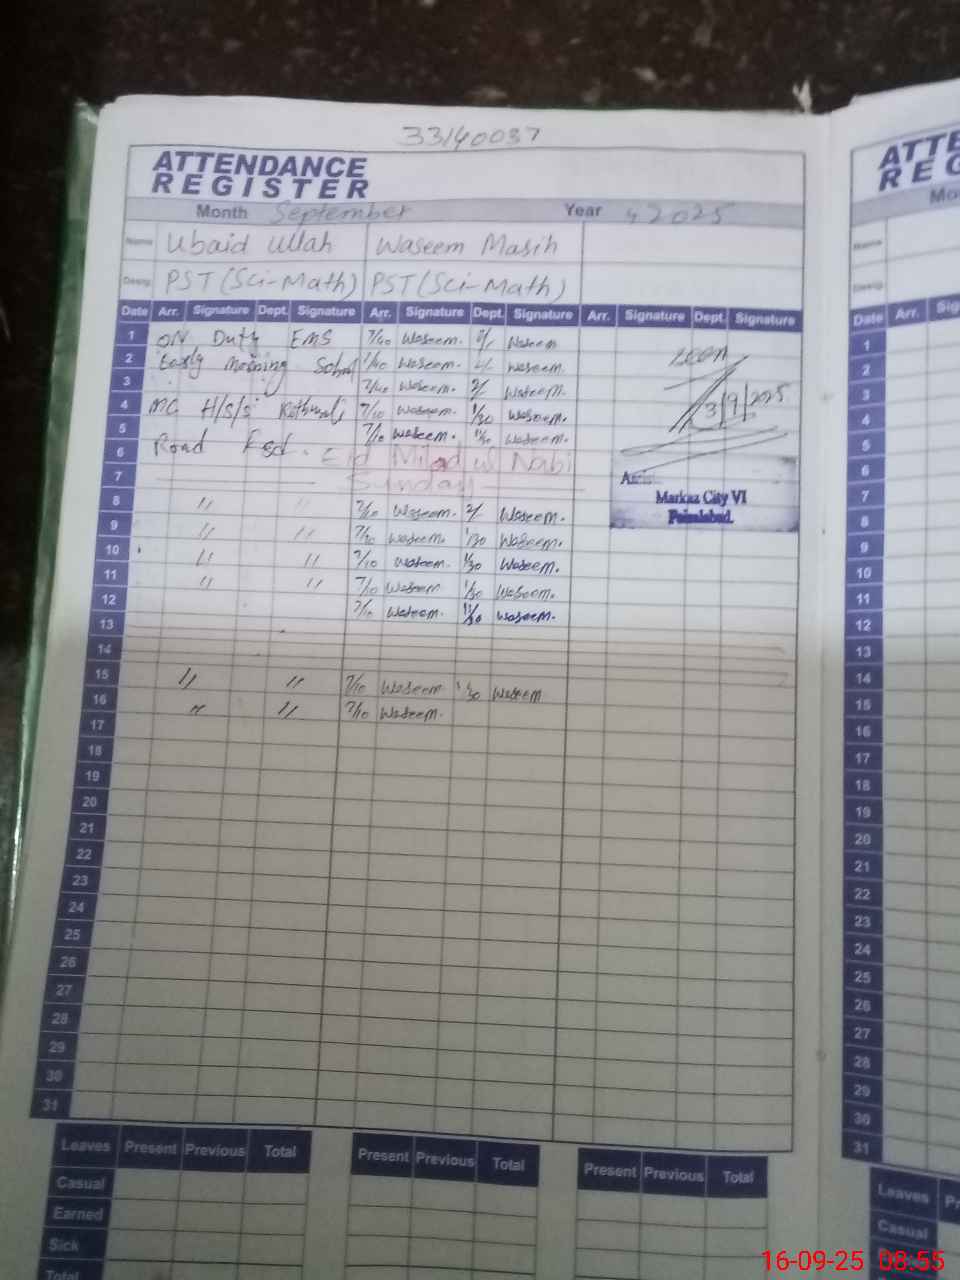 33140037
ATTENDANCE
REGISTER
Month September Year 2025
Name Ubaid Ullah Waseem Masih
Desig. PST (Sci-Math) PST (Sci-Math)
Date Arr. Signature Dept. Signature Arr. Signature Dept. Signature Arr. Signature Dept. Signature
1 ON Duty EMS 7/10 Waseem. 2/ Waseem
2 Early Morning 7/10 Waseem. 2/ Waseem.
3 7/10 Waseem. 2/ Waseem.
4 MC H/S/S 7/10 Waseem. 1/30 Waseem.
5 7/10 Waseem. 11/30 Waseem.
6 Road Fsd. Eid Milad ul Nabi
7 Sunday
8 〃 〃 7/10 Waseem. 2/ Waseem.
9 〃 〃 7/10 Waseem. 1/30 Waseem.
10 〃 〃 7/10 Waseem. 1/30 Waseem.
11 〃 〃 7/10 Waseem 1/30 Waseem.
12 7/10 Waseem. 11/30 Waseem.
13
14
15 〃 〃 7/10 Waseem 1/30 Waseem
16 〃 〃 7/10 Waseem.
17
18
19
20
21
22
23
24
25
26
27
28
29
30
31
Seen
3/9/2025
Markaz City VI
Faisalabad.
Leaves Present Previous Total Present Previous Total Present Previous Total
Casual
Earned
Sick
Total
ATTE
REG
Mo
Name
Desig.
Date Arr. Sig
1
2
3
4
5
6
7
8
9
10
11
12
13
14
15
16
17
18
19
20
21
22
23
24
25
26
27
28
29
30
31
Leaves P
Casual
16-09-25 08:55